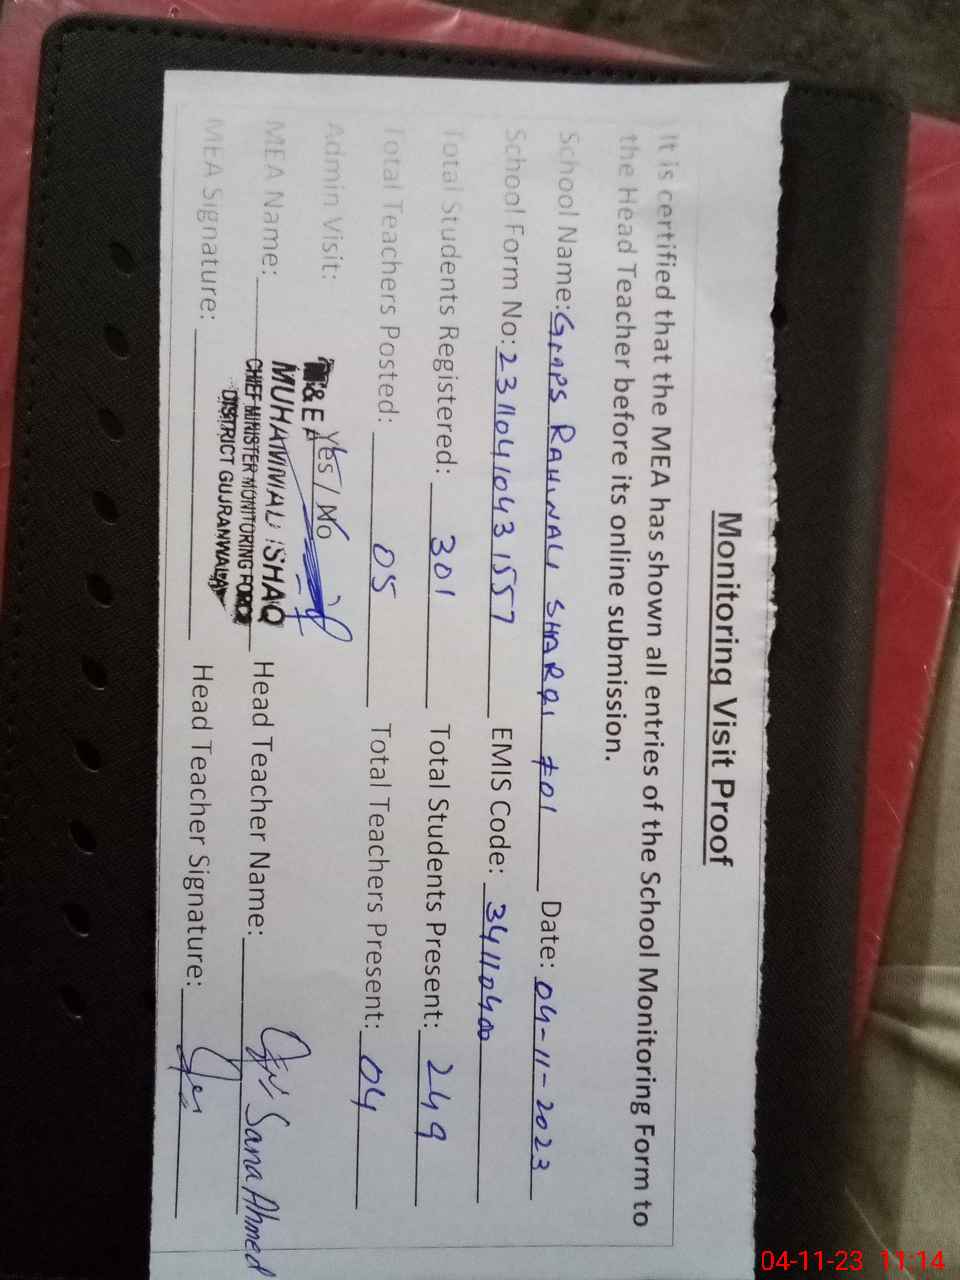 Monitoring Visit Proof
It is certified that the MEA has shown all entries of the School Monitoring Form to
the Head Teacher before its online submission.
School Name: GMPS RAHWALI SHARQI #01 Date: 04-11-2023
School Form No: 23110410431557 EMIS Code: 34110400
Total Students Registered: 301 Total Students Present: 249
Total Teachers Posted: 05 Total Teachers Present: 04
Admin Visit: Yes / No
M&EA
MEA Name: MUHAMMAD ISHAQ Head Teacher Name: Sana Ahmed
CHIEF MINISTER MONITORING FORCE
DISTRICT GUJRANWALA
MEA Signature: Head Teacher Signature:
04-11-23 11:14